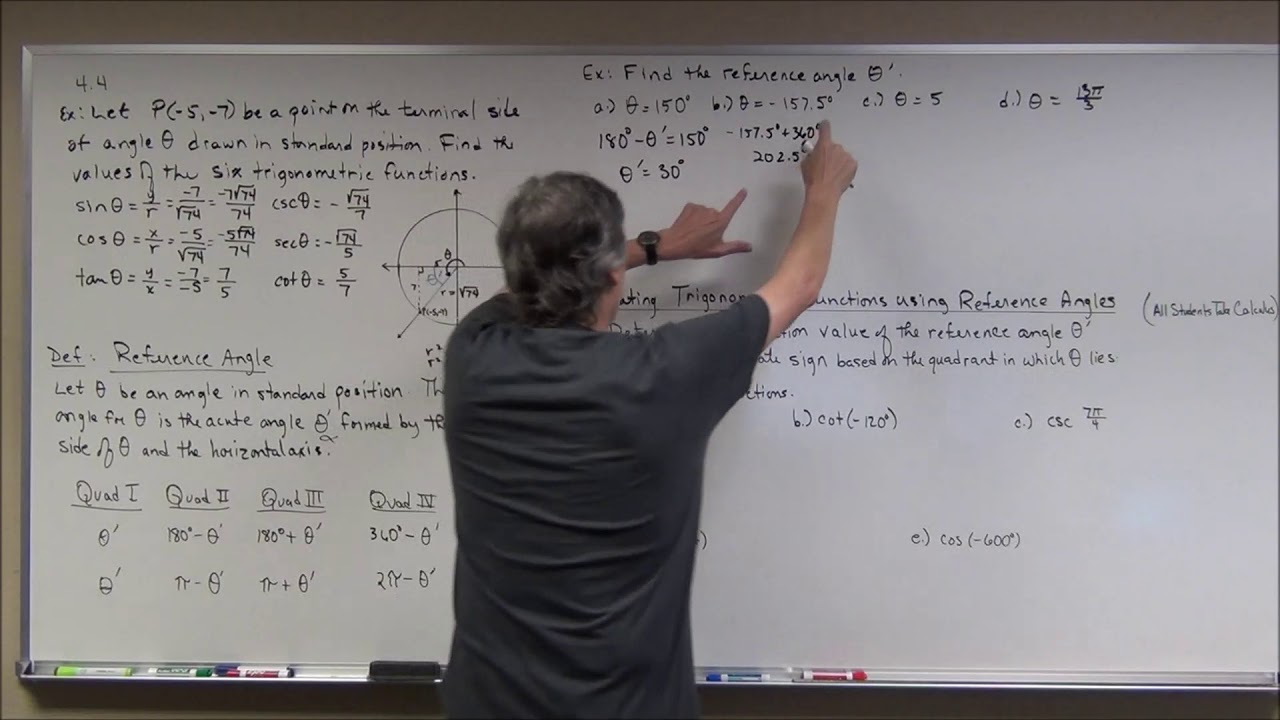 4.4
Ex: Let P(-5,-7) be a point on the terminal side
of angle θ drawn in standard position. Find the
values of the six trigonometric functions.
sinθ = y/r = -7/√74 = -7√74/74 cscθ = -√74/7
cosθ = x/r = -5/√74 = -5√74/74 secθ = -√74/5
tanθ = y/x = -7/-5 = 7/5 cotθ = 5/7
θ
5
7
θ'
r=√74
P(-5,-7)
r²
r²
Def: Reference Angle
Let θ be an angle in standard position. Th
angle for θ is the acute angle θ' formed by th
side of θ and the horizontal axis.
Quad I Quad II Quad III Quad IV
θ' 180°-θ' 180°+θ' 360°-θ'
θ' π-θ' π+θ' 2π-θ'
Ex: Find the reference angle θ'.
a.) θ=150° b.) θ=-157.5° c.) θ=5 d.) θ=
180°-θ'=150° -157.5°+360°
θ'=30° 202.5°
ating Trigono unctions using Reference Angles
(All Students Take Calculus)
Dete ion value of the reference angle θ'
ate sign based on the quadrant in which θ lies
ctions.
b.) cot(-120°) c.) csc 7π/4
) e.) cos(-600°)